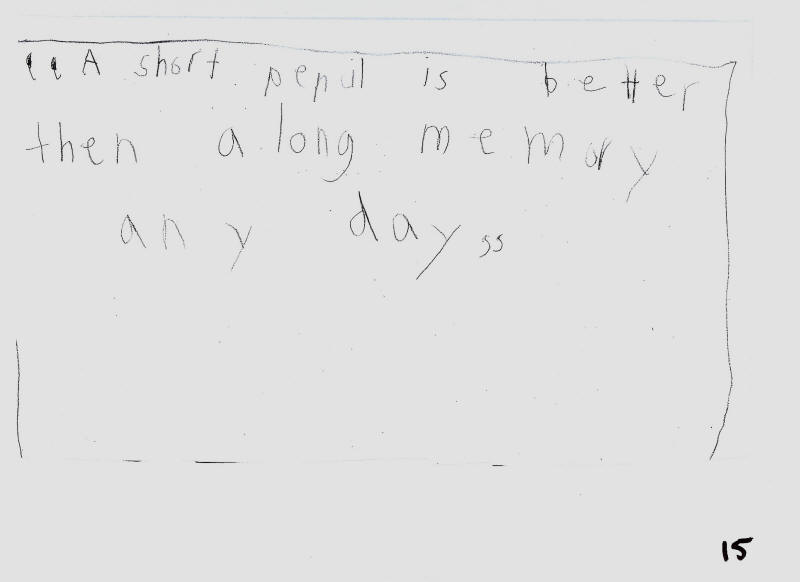 “A short pepul is better
then a long memory
any day”
15